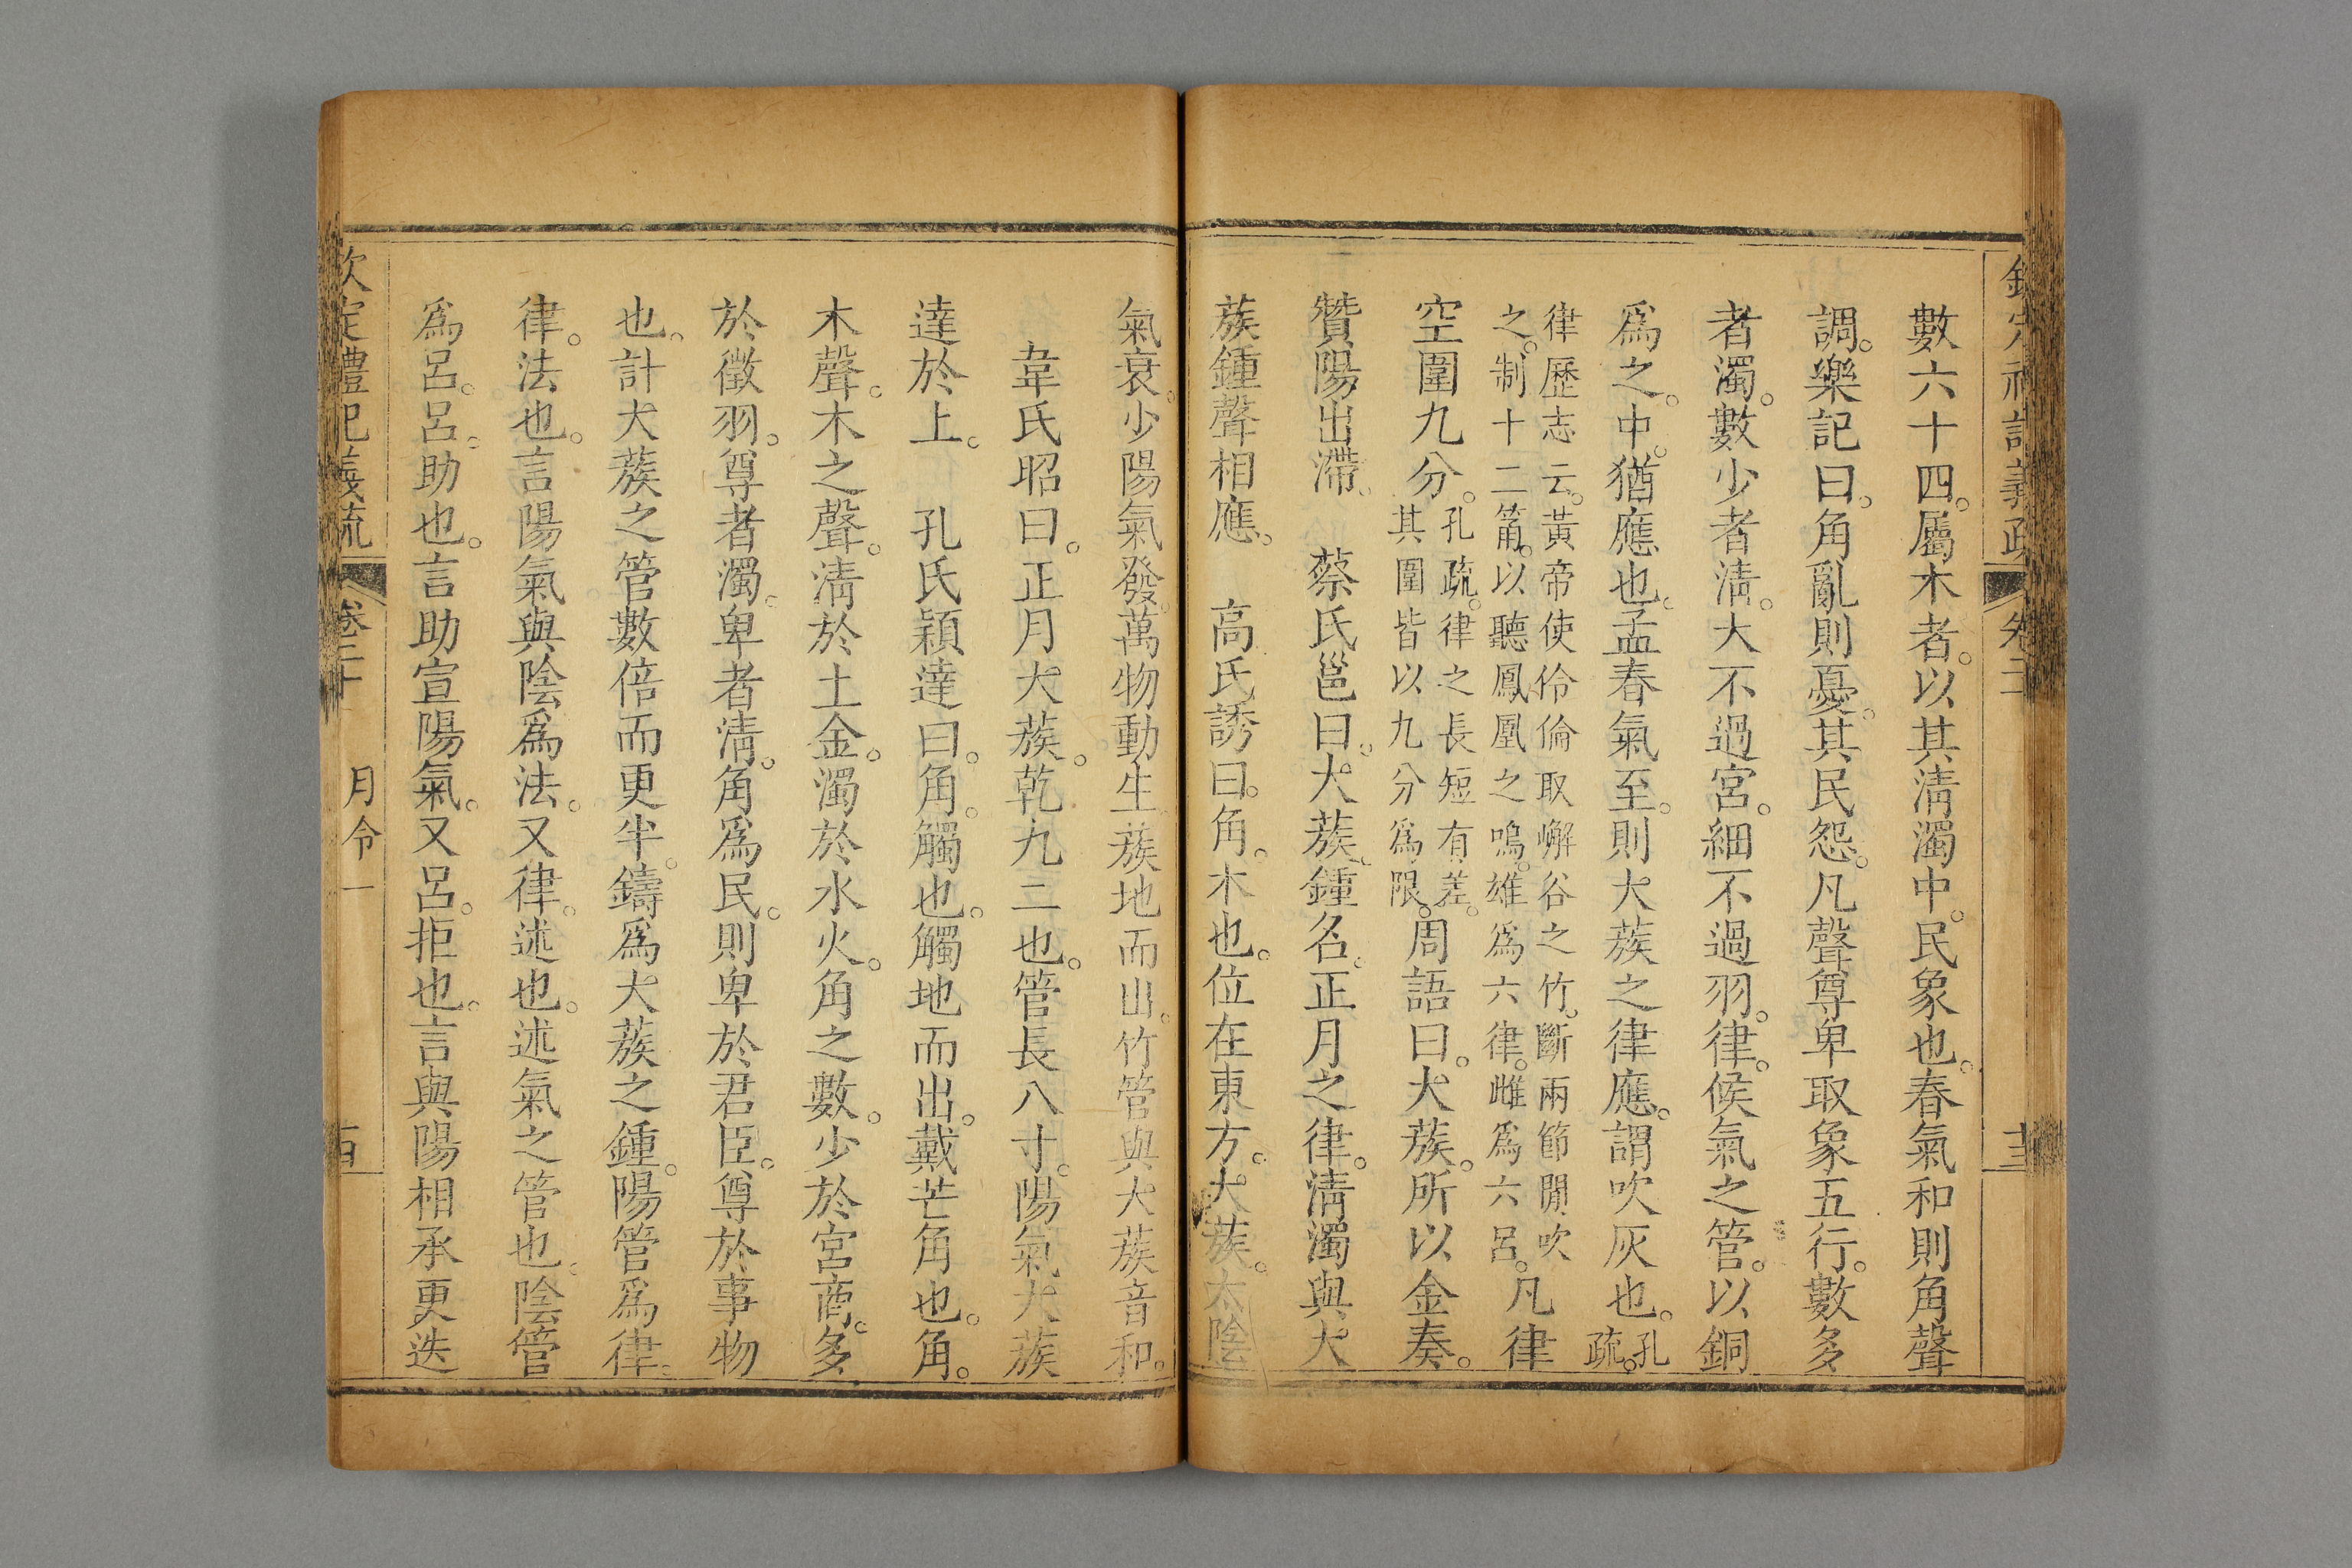 數六十四。屬木者。以其淸濁中。民象也。春氣和則角聲
調。樂記曰。角亂則憂。其民怨。凡聲尊卑取象五行。數多
者濁。數少者淸。大不過宮。細不過羽。律。候氣之管。以銅
爲之。中。猶應也。孟春氣至。則大蔟之律應。謂吹灰也。孔疏。
律歷志云。黃帝使伶倫取嶰谷之竹。斷兩節閒吹
之。制十二筩。以聽鳳凰之鳴。雄爲六律。雌爲六呂。凡律
空圍九分。孔疏。律之長短有差。其圍皆以九分爲限。周語曰。大蔟。所以金奏。
贊陽出滯。 蔡氏邕曰。大蔟。鍾名。正月之律。淸濁與大
蔟鍾聲相應。 高氏誘曰。角。木也。位在東方。大蔟。太陰
氣衰。少陽氣發。萬物動生。蔟地而出。竹管與大蔟音和。
韋氏昭曰。正月大蔟。乾九二也。管長八寸。陽氣大蔟
達於上。 孔氏穎達曰。角。觸也。觸地而出。戴芒角也。角。
木聲。木之聲。淸於土金。濁於水火。角之數。少於宮商。多
於徵羽。尊者濁。卑者淸。角爲民。則卑於君臣。尊於事物
也。計大蔟之管數倍而更半。鑄爲大蔟之鍾。陽管爲律。
律。法也。言陽氣與陰爲法。又律。述也。述氣之管也。陰管
爲呂。呂。助也。言助宣陽氣。又呂。拒也。言與陽相承更迭
欽定禮記義疏 卷二十 月令一